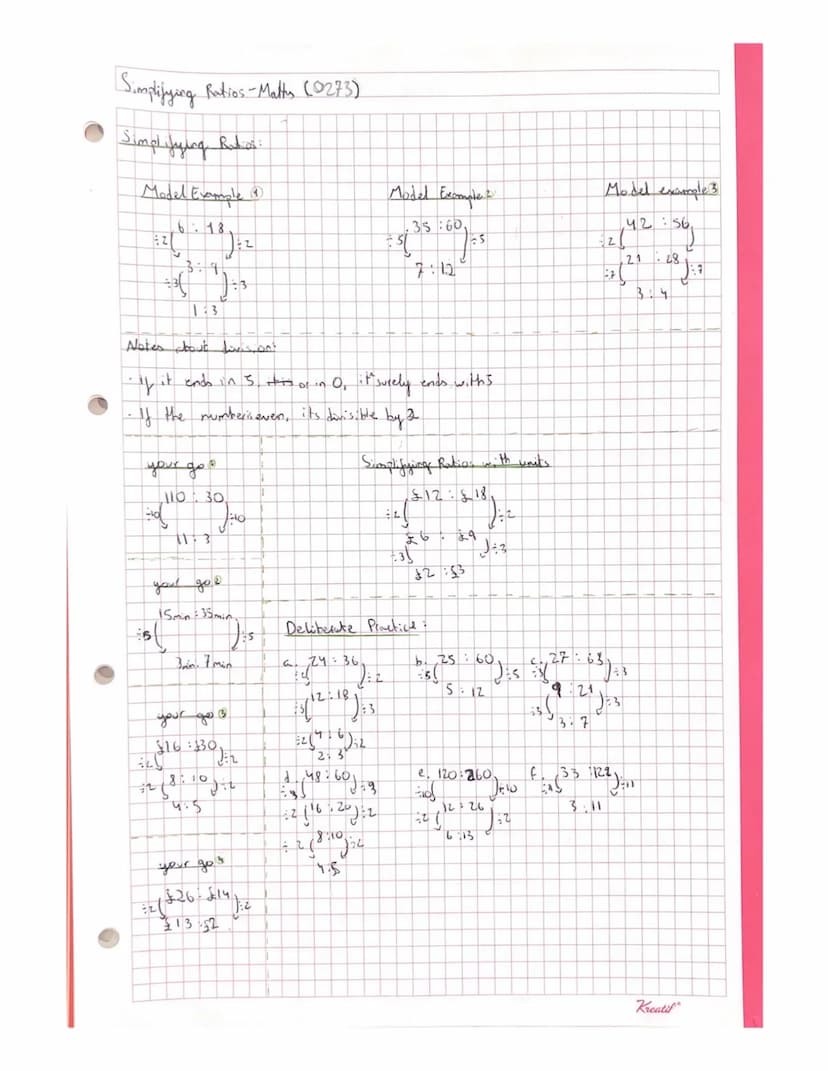 Simplifying Ratios - Maths (0273)
Simplifying Ratios:
Model Example 1
6 : 18
÷2 ÷2
3 : 9
÷3 ÷3
1 : 3
Model Example 2
35 : 60
÷5 ÷5
7 : 12
Model example 3
42 : 56
÷2
21 : 28
÷7 ÷7
3 : 4
Notes about division:
· If it ends in 5, or in 0, it surely ends with 5
· If the number is even, its divisible by 2
your go 1
110 : 30
÷10 ÷10
11 : 3
your go 2
15min : 35min
÷5 ÷5
3min : 7 min
your go 3
£16 : £30
÷2 ÷2
8 : 10
÷2 ÷2
4 : 5
your go 4
£26 : £14
÷2 ÷2
£13 : £2
Simplifying Ratios with units
£12 : £18
÷2 ÷2
£6 : £9
÷3 ÷3
£2 : £3
Deliberate Practice :
a. 24 : 36
÷2 ÷2
12 : 18
÷3 ÷3
4 : 6
÷2 ÷2
2 : 3
b. 25 : 60
÷5 ÷5
5 : 12
c. 27 : 63
÷3 ÷3
9 : 21
÷3 ÷3
3 : 7
d. 48 : 60
÷3
16 : 20
÷2 ÷2
8 : 10
÷2 ÷2
4 : 5
e. 120 : 260
÷10 ÷10
12 : 26
÷2 ÷2
6 : 13
f. 33 : 122
÷11
3 : 11
Kreatif